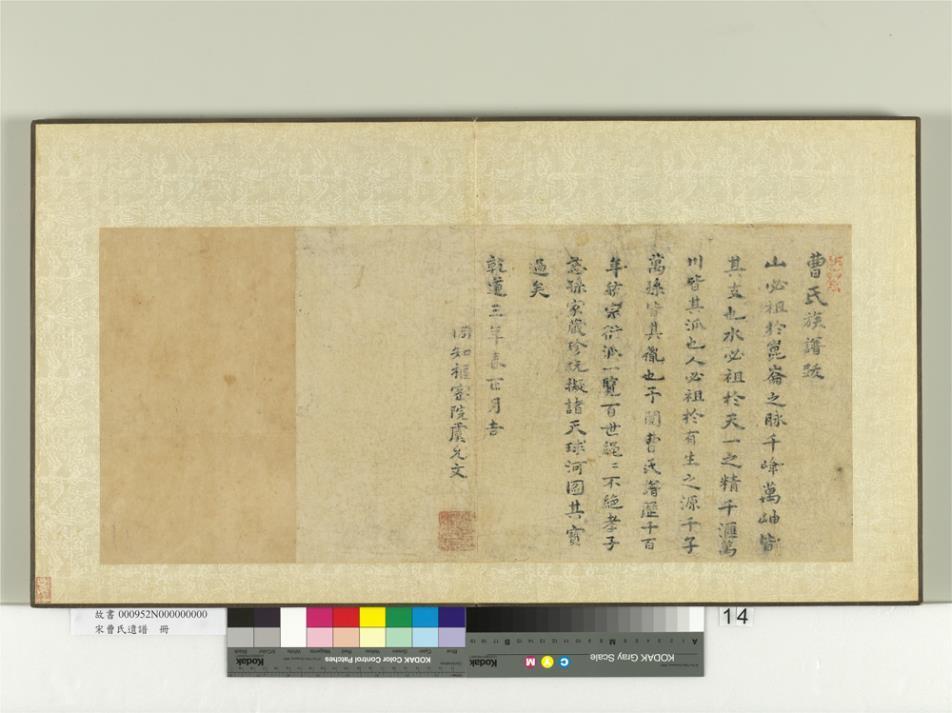 曹氏族譜跋
山必祖於崑崙之脉千峰萬岫皆
其支也水必祖於天一之精千滙萬
川皆其派也人必祖於有生之源千子
萬孫皆其胤也予閱曹氏譜歷千百
年紛宗衍派一覽百世繩〻不絶孝子
慈孫家藏珍玩擬諸天球河圖其寶
過矣
乾道三年春正月吉
同知樞密院虞允文
故書 000952N000000000
宋曹氏遺譜 冊
14
KODAK Color Control Patches
Kodak
KODAK Gray Scale
Kodak
C
Y
M
A
M
B